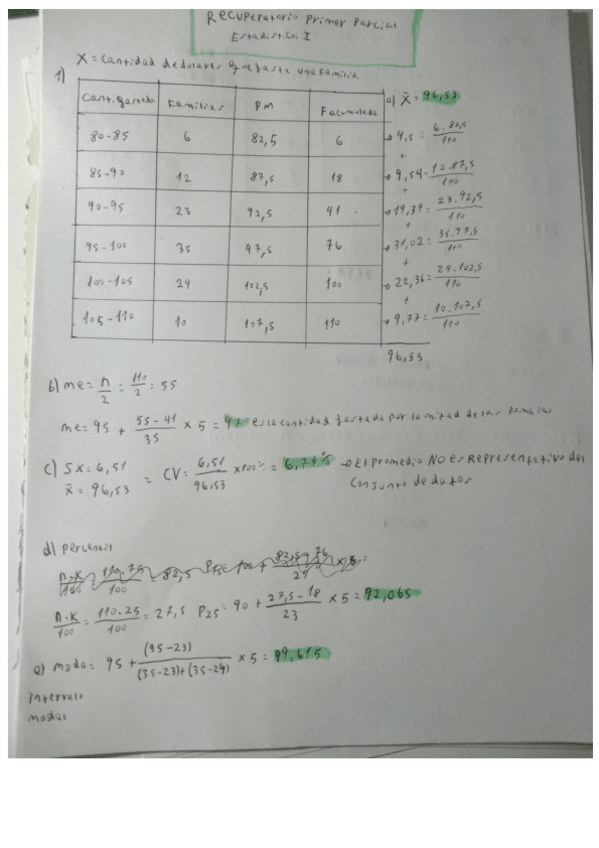 Recuperatorio Primer Parcial
Estadistica I
X = Cantidad de dolares que gasta una Familia
1)
Cant. gastada Familias PM F acumulada
80-85 6 82,5 6
85-90 12 87,5 18
90-95 23 92,5 41
95-100 35 97,5 76
100-105 24 102,5 100
105-110 10 107,5 110
a) x̄ = 96,53
→ 4,5 = 6.82,5/110
+
→ 9,54 = 12.87,5/110
+
→ 19,34 = 23.92,5/110
+
→ 31,02 = 35.97,5/110
+
→ 22,36 = 24.102,5/110
+
→ 9,77 = 10.107,5/110
96,53
b) me = n/2 = 110/2 = 55
me = 95 + 55-41/35 × 5 = 97 es la cantidad gastada por la mitad de las familias
c) Sx = 6,51
x̄ = 96,53 = CV = 6,51/96,53 × 100% = 6,74% → El promedio NO es Representativo del
Conjunto de datos
d) Percentil
n.k/100 = 110.75/100 = 82,5 P75 = 100 + 82,5-76/24 × 5 =
n.k/100 = 110.25/100 = 27,5 P25 = 90 + 27,5-18/23 × 5 = 92,065
e) modo = 95 + (35-23)/(35-23)+(35-24) × 5 = 97,615
intervalo
modal